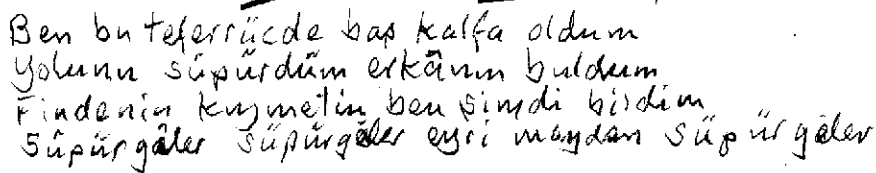 Ben bu teferrücde baş kalfa oldum
Yolunu süpürdüm erkânın buldum
Findenin kıymetin ben şimdi bildim
Süpürgâler süpürgâler eyri meydan süpürgâler